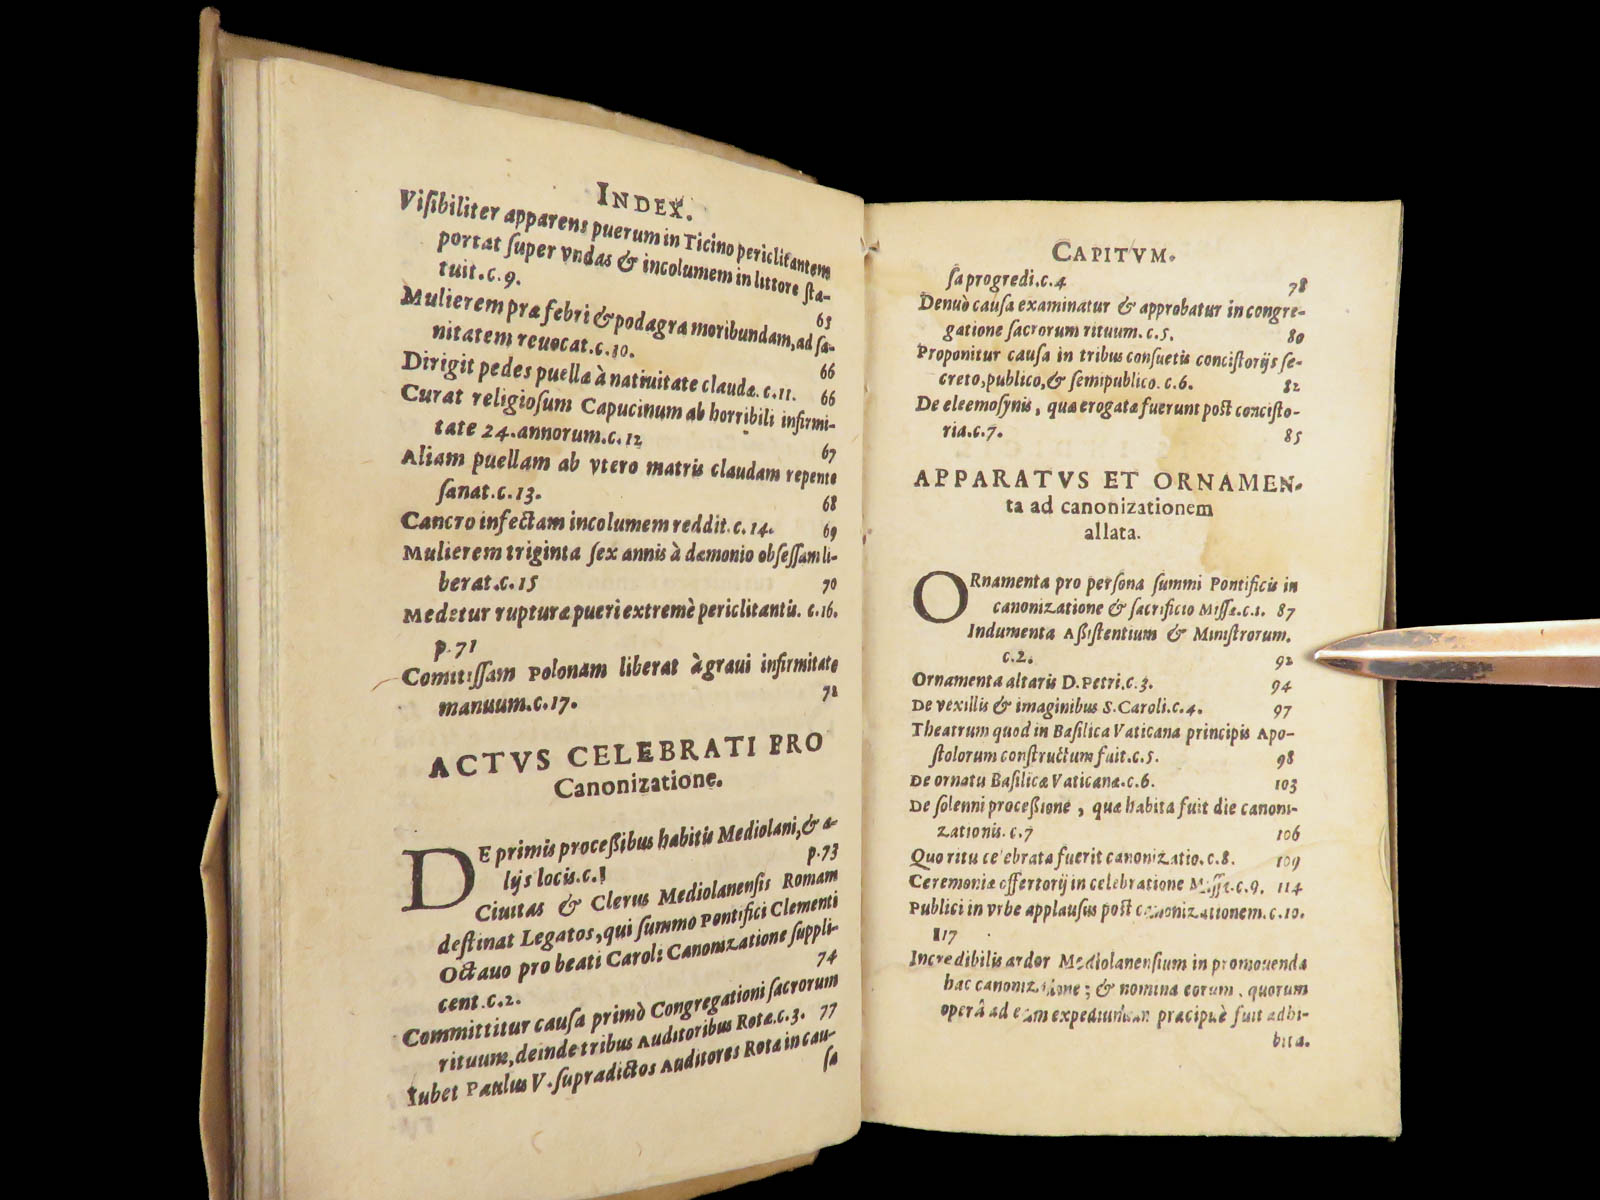 INDEX.
Viſibiliter apparens puerum in Ticino periclitantem
portat ſuper vndas & incolumem in littore ſta-
tuit.c.9. 65
Mulierem præ febri & podagra moribundam, ad ſa-
nitatem reuocat.c.10. 66
Dirigit pedes puellæ à natiuitate claudæ. c.11. 66
Curat religioſum Capucinum ab horribili infirmi-
tate 24.annorum.c.12 67
Aliam puellam ab vtero matris claudam repente
ſanat.c.13. 68
Cancro infectam incolumem reddit.c.14. 69
Mulierem triginta ſex annis à dæmonio obſeſſam li-
berat.c.15 70
Medetur rupturæ pueri extremè periclitantis. c.16.
p.71
Comitiſſam Polonam liberat à graui infirmitate
manuum.c.17. 72
ACTVS CELEBRATI PRO
Canonizatione.
DE primis proceßibus habitis Mediolani,& a-
lijs locis.c.1 p.73
Ciuitas & Clerus Mediolanenſis Romam
deſtinat Legatos, qui ſummo Pontifici Clementi
Octauo pro beati Caroli Canonizatione ſuppli-
cent.c.2. 74
Committitur cauſa primò Congregationi ſacrorum
rituum, deinde tribus Auditoribus Rotæ.c.3. 77
Iubet Paulus V. ſupradictos Auditores Rota in cau-
ſa
CAPITVM.
ſa progredi.c.4 78
Denuò cauſa examinatur & approbatur in congre-
gatione ſacrorum rituum.c.5. 80
Proponitur cauſa in tribus conſuetis conciſtorijs ſe-
creto, publico, & ſemipublico. c.6. 82
De eleemoſynis, quæ erogatæ fuerunt poſt conciſto-
ria.c.7. 85
APPARATVS ET ORNAMEN-
ta ad canonizationem
allata.
ORnamenta pro perſona ſummi Pontificis in
canonizatione & ſacrificio Miſſæ.c.1. 87
Indumenta Aßiſtentium & Miniſtrorum.
c.2. 92
Ornamenta altaris D.Petri.c.3. 94
De vexillis & imaginibus S.Caroli.c.4. 97
Theatrum quod in Baſilica Vaticana principis Apo-
ſtolorum conſtructum fuit.c.5. 98
De ornatu Baſilicæ Vaticanæ.c.6. 103
De ſolenni proceßione, quæ habita fuit die canoni-
zationis.c.7 106
Quo ritu celebrata fuerit canonizatio.c.8. 109
Ceremoniæ offertorij in celebratione Miſſæ.c.9. 114
Publici in vrbe applauſus poſt canonizationem.c.10.
117
Incredibilis ardor Mediolanenſium in promouenda
hac canonizatione; & nomina eorum, quorum
operâ ad eam expediundam præcipuè fuit adhi-
bita.